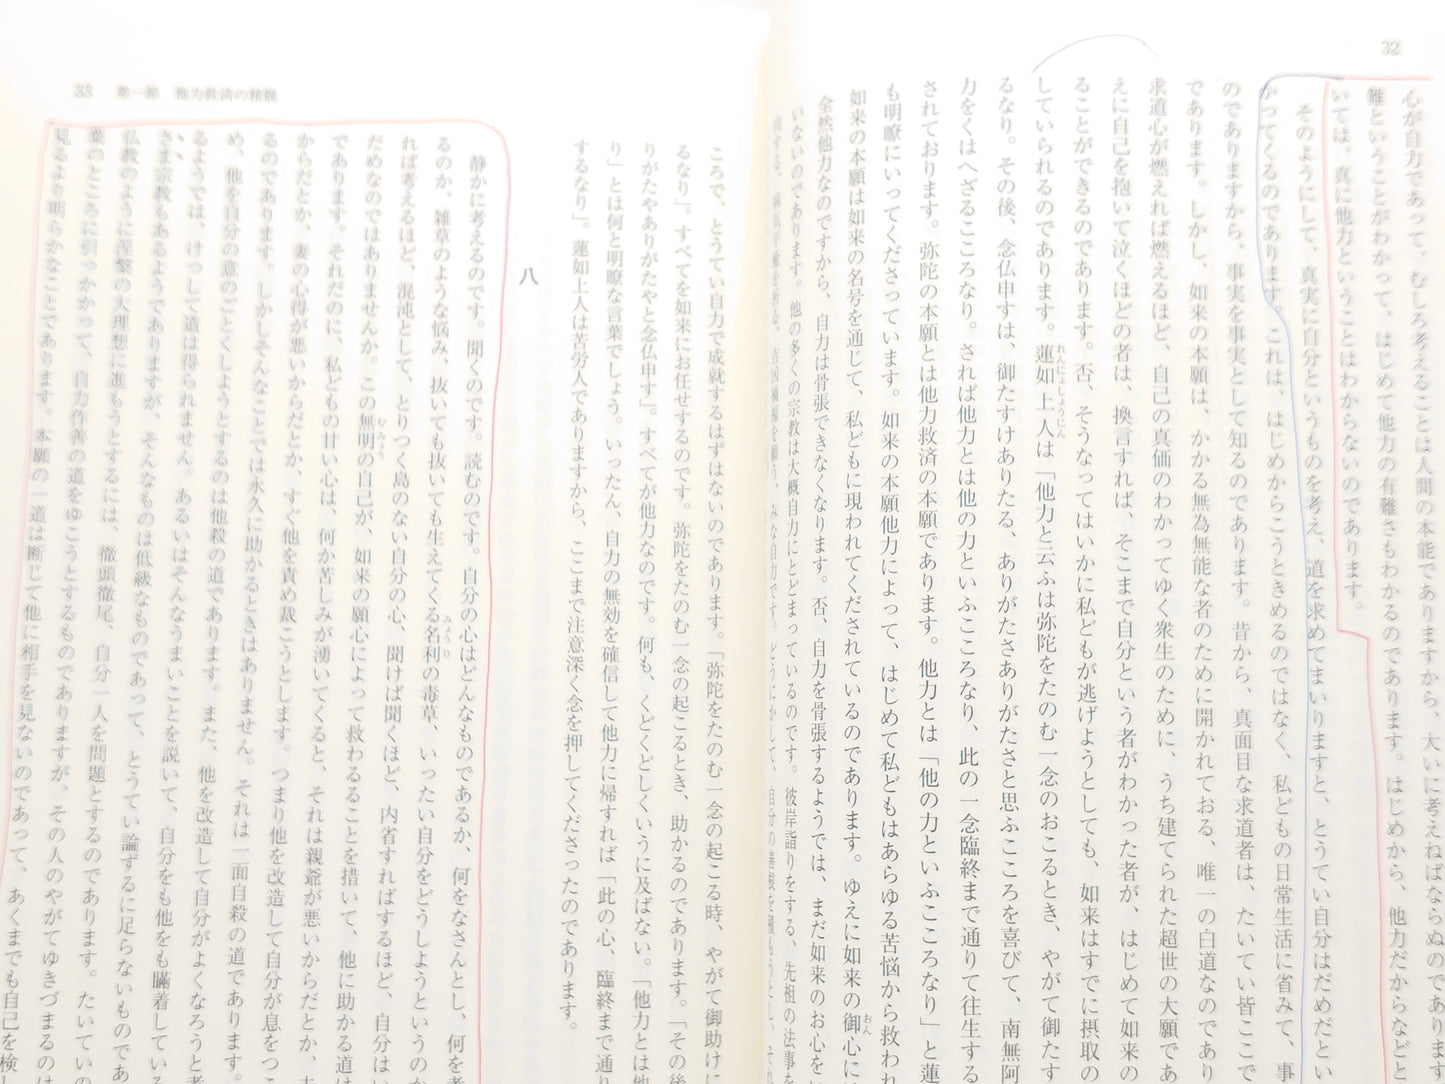 32
心が自力であって、むしろ考えることは人間の本能でありますから、大いに考えねばならぬのであります
難ということがわかって、はじめて他力の有難さもわかるのであります。はじめから、他力だからなどと
いては、真に他力ということはわからないのであります。
そのようにして、真実に自分というものを考え、道を求めてまいりますと、とうてい自分はだめだとい
かってくるのであります。これは、はじめからこうときめるのではなく、私どもの日常生活に省みて、事
のでありますから、事実を事実として知るのであります。昔から、真面目な求道者は、たいてい皆ここで
であります。しかし、如来の本願は、かかる無為無能な者のために開かれておる、唯一の白道なのであり
求道心が燃えれば燃えるほど、自己の真価のわかってゆく衆生のために、うち建てられた超世の大願であ
えに自己を抱いて泣くほどの者は、換言すれば、そこまで自分という者がわかった者が、はじめて如来の
ることができるのであります。否、そうなってはいかに私どもが逃げようとしても、如来はすでに摂取の
していられるのであります。蓮如上人は「他力と云ふは弥陀をたのむ一念のおこるとき、やがて御たす
れんにょしょうにん
るなり。その後、念仏申すは、御たすけありたる、ありがたさありがたさと思ふこころを喜びて、南無阿
力をくはへざるこころなり。されば他力とは他の力といふこころなり、此の一念臨終まで通りて往生する
されております。弥陀の本願とは他力救済の本願であります。他力とは「他の力といふこころなり」と蓮
も明瞭にいってくださっています。如来の本願他力によって、はじめて私どもはあらゆる苦悩から救われ
如来の本願は如来の名号を通じて、私どもに現われてくだされているのであります。ゆえに如来の御心に
おん
全然他力なのですから、自力は骨張できなくなります。否、自力を骨張するようでは、まだ如来のお心を
いないのであります。他の多くの宗教は大概自力にとどまっているのです。彼岸詣りをする、先祖の法事を
吉凶禍福を願う、みな自力です。どうにかして、自分の善根を積もうとし、それ
33 第一節 他力救済の精髄
ころで、とうてい自力で成就するはずはないのであります。「弥陀をたのむ一念の起こる時、やがて御助けに
るなり」。すべてを如来にお任せするのです。弥陀をたのむ一念の起こるとき、助かるのであります。「その後
りがたやありがたやと念仏申す」。すべてが他力なのです。何も、くどくどしくいうに及ばない。「他力とは他
り」とは何と明瞭な言葉でしょう。いったん、自力の無効を確信して他力に帰すれば「此の心、臨終まで通り
するなり」。蓮如上人は苦労人でありますから、ここまで注意深く念を押してくださったのであります。
八
静かに考えるのです。聞くのです。読むのです。自分の心はどんなものであるか、何をなさんとし、何を考
るのか、雑草のような悩み、抜いても抜いても生えてくる名利の毒草、いったい自分をどうしようというのか
みょうり
れば考えるほど、混沌として、とりつく島のない自分の心、聞けば聞くほど、内省すればするほど、自分はい
だめなのではありませんか。この無明の自己が、如来の願心によって救わるることを措いて、他に助かる道は
むみょう
であります。それだのに、私どもの甘い心は、何か苦しみが湧いてくると、それは親爺が悪いからだとか、夫
からだとか、妻の心得が悪いからだとか、すぐ他を責め裁こうとします。つまり他を改造して自分が息をつこ
るのであります。しかしそんなことでは永久に助かるときはありません。それは一面自殺の道であります。
め、他を自分の意のごとくしようとするのは他殺の道であります。また、他を改造して自分がよくなろうと考
るようでは、けっして道は得られません。あるいはそんなうまいことを説いて、自分をも他をも瞞着している
さま宗教もあるようでありますが、そんなものは低級なものであって、とうてい論ずるに足らないものであ
仏教のように涅槃の大理想に進もうとするには、徹頭徹尾、自分一人を問題とするのであります。たいていの
葉のところに引っかかって、自力作善の道をゆこうとするものでありますが、その人のやがてゆきづまるのは
見るより明らかなことであります。本願の一道は断じて他に相手を見ないのであって、あくまでも自己を検